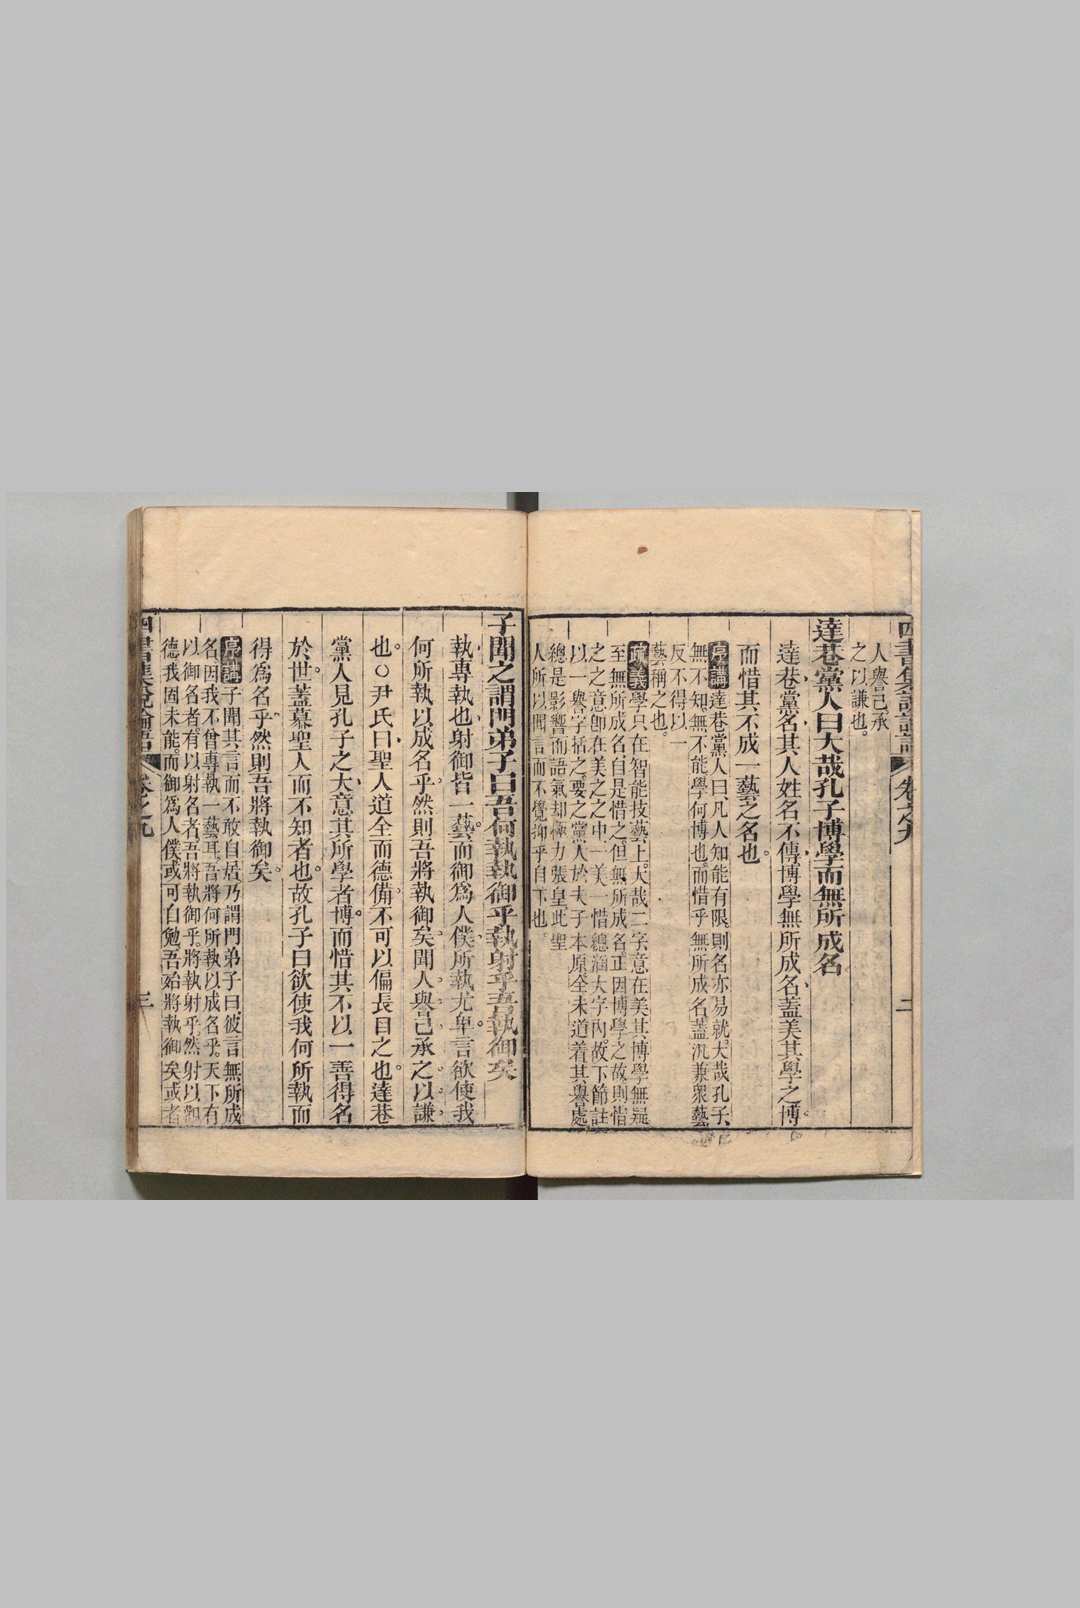 人譽己承
之以謙也。
達巷黨人曰大哉孔子博學而無所成名
達巷黨名其人姓名不傳博學無所成名蓋美其學之博
而惜其不成一藝之名也。
序講達巷黨人曰凡人知能有限則名亦易就大哉孔子
無不知無不能學何博也而惜乎無所成名蓋汎兼衆藝
反不得以一
藝稱之也。
疏義學只在智能技藝上大哉二字意在美其博學無疑
至無所成名自是惜之但無所成名正因博學之故則惜
之之意卽在美之之中一美一惜總涵大字內故下節註
以一譽字括之要之黨人於夫子本原全未道着其譽處
總是影響而語氣却極力張皇此聖
人所以聞言而不覺抑乎自下也
四書集說論語 卷之九 二
子聞之謂門弟子曰吾何執執御乎執射乎吾執御矣
執專執也射御皆一藝而御爲人僕所執尤卑言欲使我
何所執以成名乎然則吾將執御矣聞人譽己承之以謙
也○尹氏曰聖人道全而德備不可以偏長目之也達巷
黨人見孔子之大意其所學者博而惜其不以一善得名
於世蓋慕聖人而不知者也故孔子曰欲使我何所執而
得爲名乎然則吾將執御矣
序講子聞其言而不敢自居乃謂門弟子曰彼言無所成
名因我不曾專執一藝耳吾將何所執以成名乎天下有
以御名者有以射名者吾將執御乎將執射乎然射以御
德我固未能而御爲人僕或可自勉吾殆將執御矣或者
四書集說論語 卷之九 三